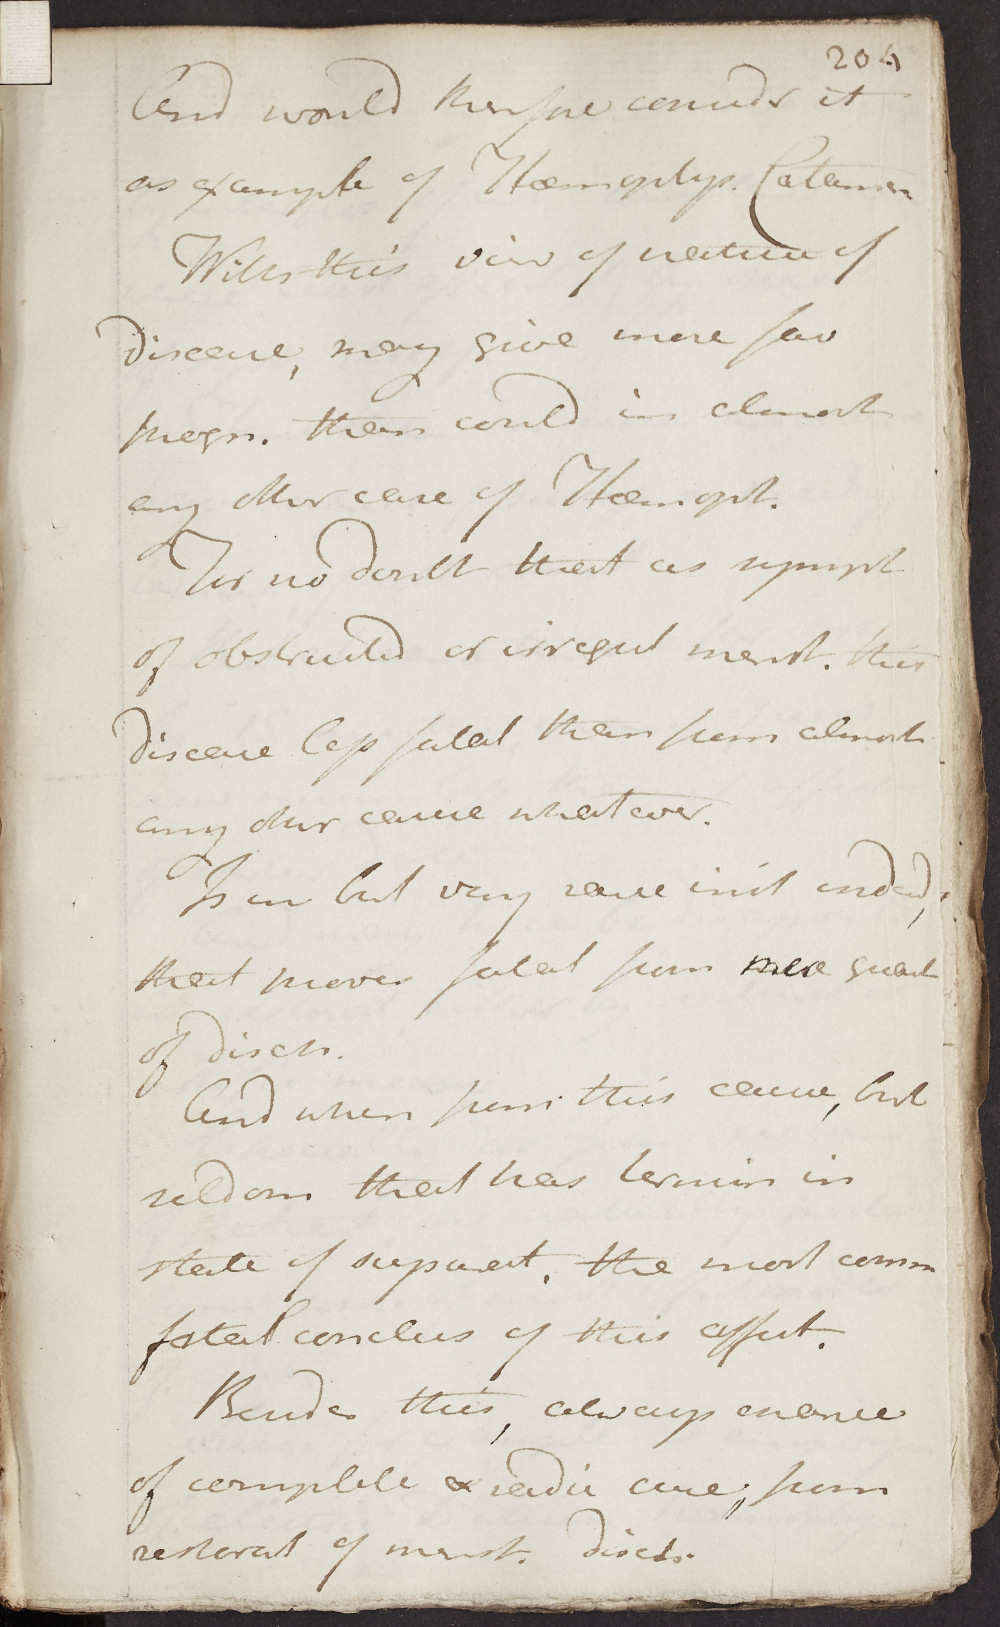 204
And would therfore consider it
as example of Hæmoptys. Catamen
With this view of nature of
disease, may give more fav
progn. than could in almost
any other case of Hæmopt.
Tis no doubt that as sympt
of obstructed or irregul menst. this
disease less fatal than from almost
any other cause whatever.
Is in but very rare inst indeed,
that proves fatal from mere quant
of disch.
And when from this cause, but
seldom that has termin in
state of suppurat. the most comm
fatal conclus of this affect.
Besides this, always chance
of complete & radic cure, from
restorat of menst. disch.